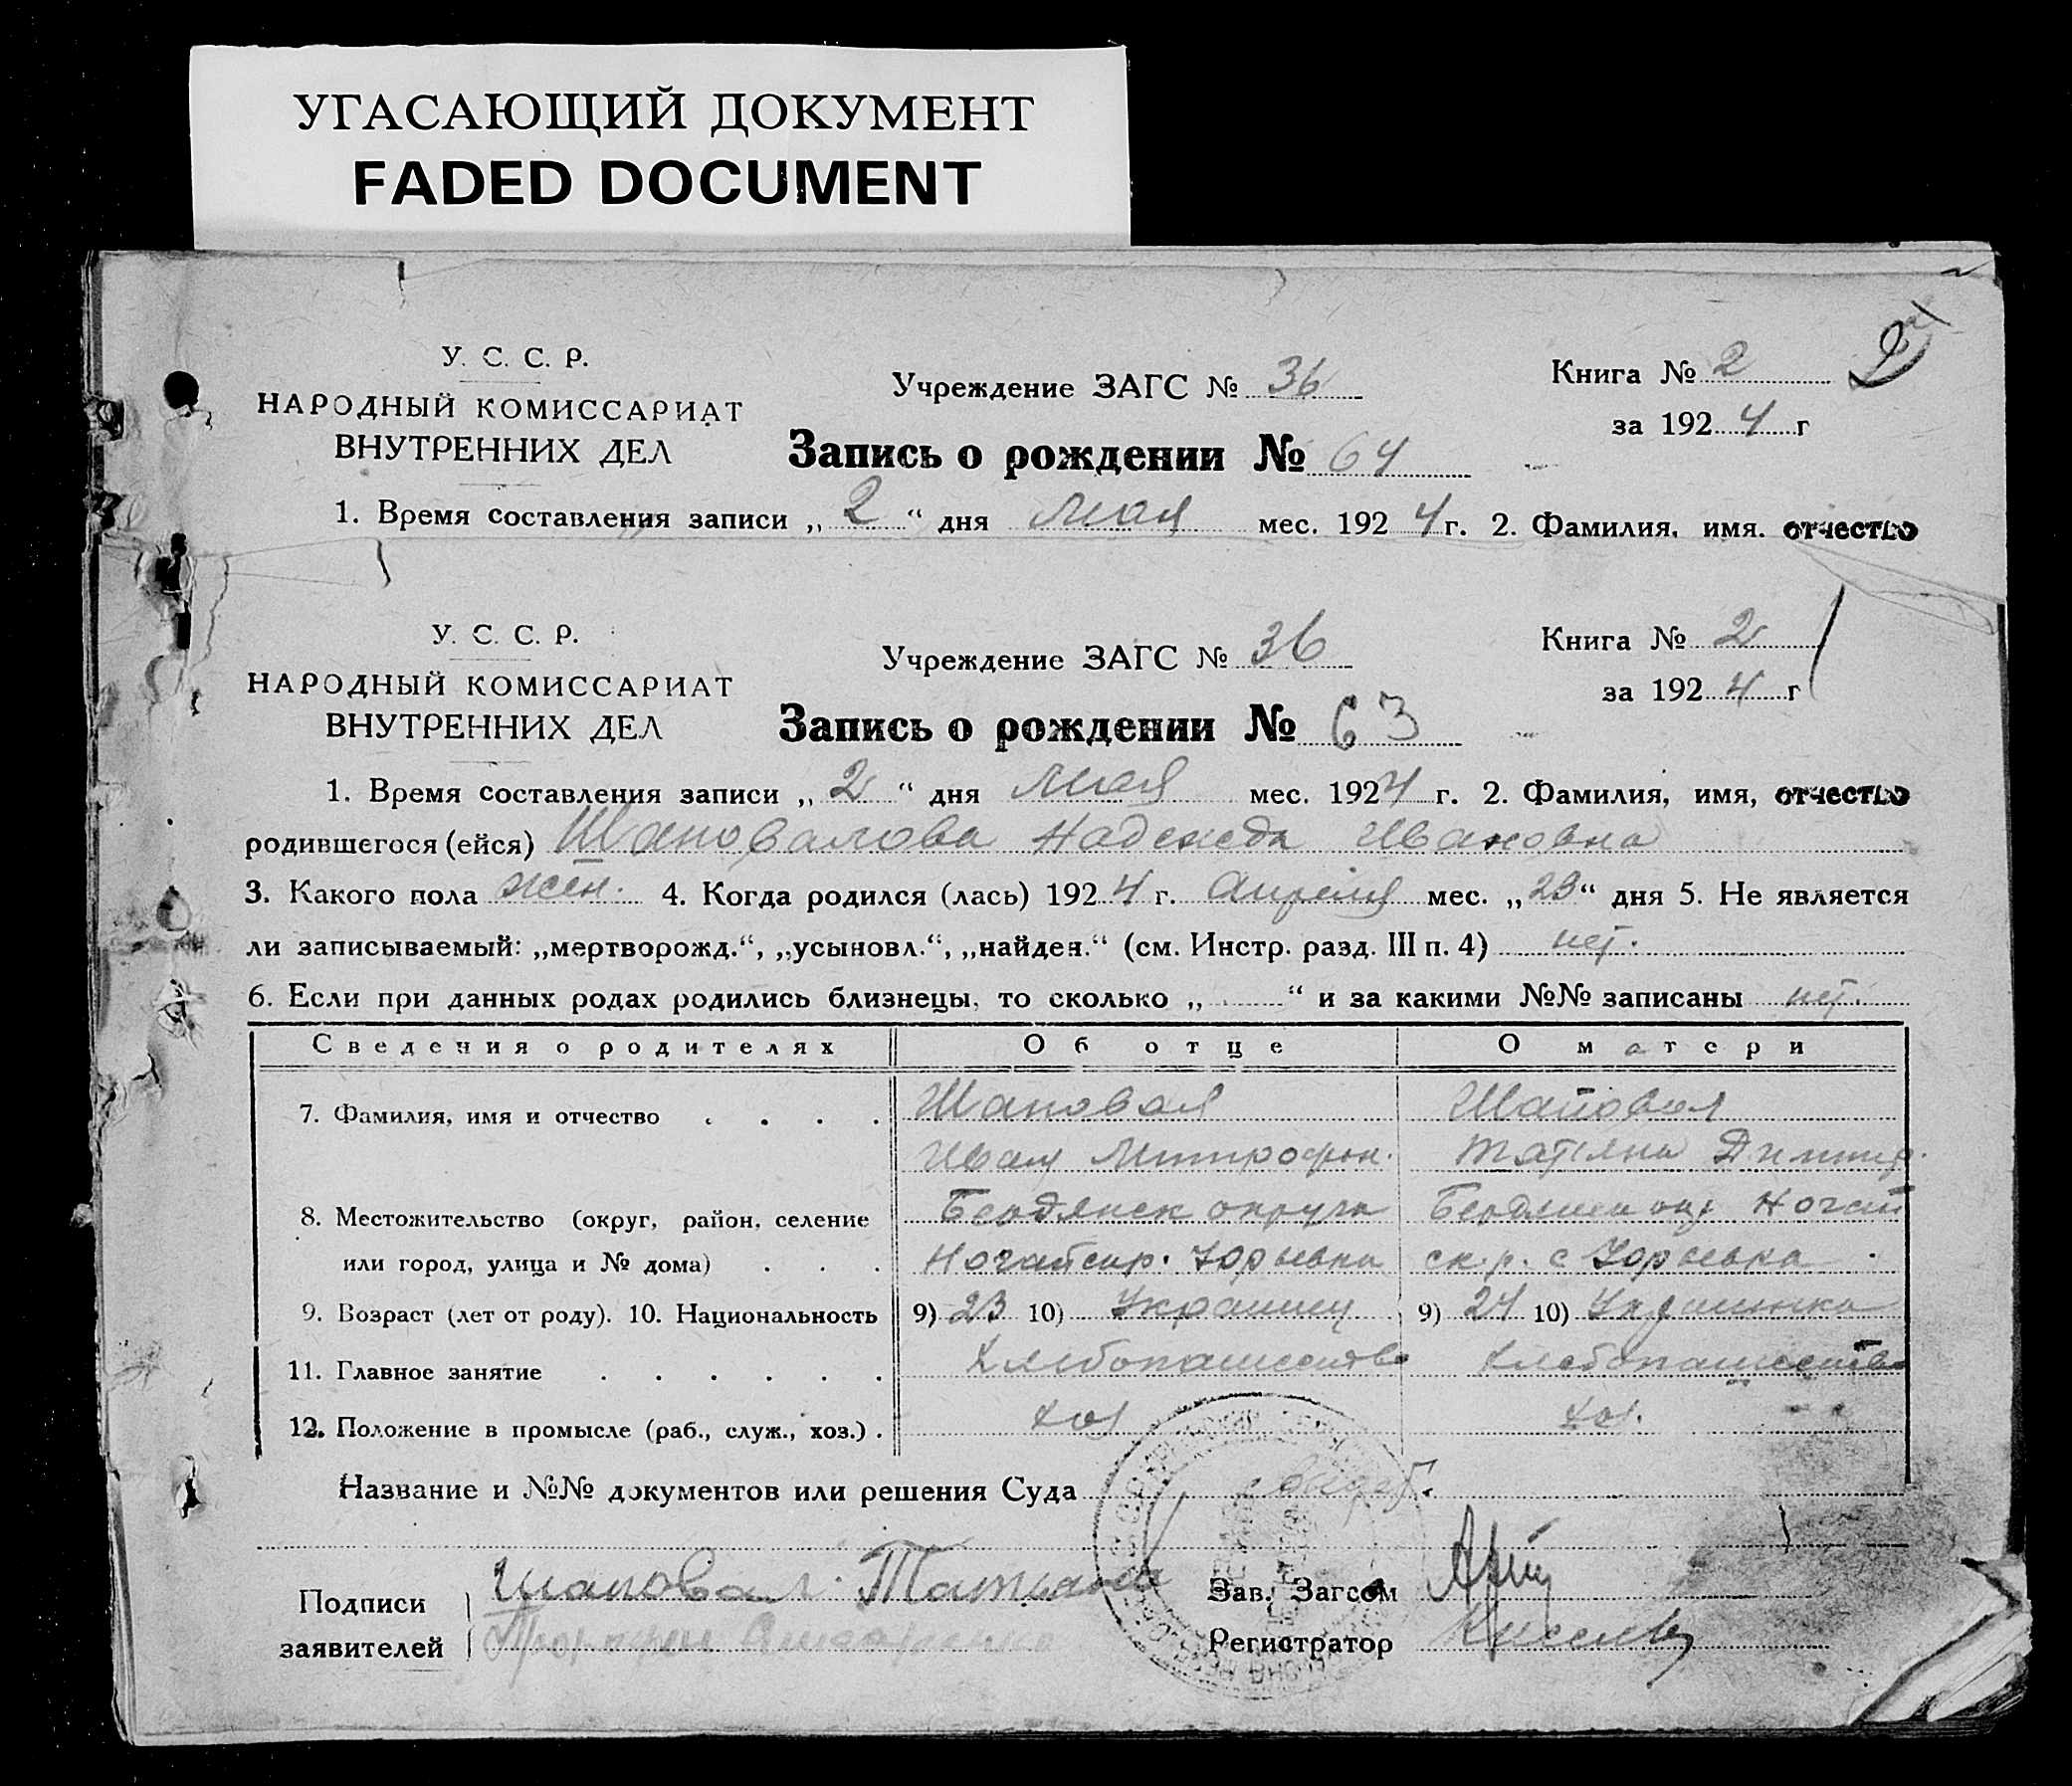 УГАСАЮЩИЙ ДОКУМЕНТ
FADED DOCUMENT
У. С. С. Р.
НАРОДНЫЙ КОМИССАРИАТ
ВНУТРЕННИХ ДЕЛ
Учреждение ЗАГС № 36
Книга № 2
за 1924 г
Запись о рождении № 64
1. Время составления записи „2“ дня Мая мес. 1924 г. 2. Фамилия, имя, отчество
У. С. С. Р.
НАРОДНЫЙ КОМИССАРИАТ
ВНУТРЕННИХ ДЕЛ
Учреждение ЗАГС № 36
Книга № 2
за 1924 г
Запись о рождении № 63
1. Время составления записи „2“ дня Мая мес. 1924 г. 2. Фамилия, имя, отчество
родившегося (ейся) Шаповалова Надежда Ивановна
3. Какого пола жен. 4. Когда родился (лась) 1924 г. Апреля мес. „23“ дня 5. Не является
ли записываемый: „мертворожд.“, „усыновл.“, „найден.“ (см. Инстр. разд. III п. 4) нет.
6. Если при данных родах родились близнецы, то сколько „ “ и за какими №№ записаны нет.
Сведения о родителях Об отце О матери
7. Фамилия, имя и отчество Шаповал Шаповал
Иван Митрофан. Татяна Димитр.
8. Местожительство (округ, район, селение Бердянск округа Бердянск окр Ногай
или город, улица и № дома) Ногайск р. Юрьевка ск. р. с Юрьевка
9. Возраст (лет от роду). 10. Национальность 9) 23 10) Украинец 9) 24 10) Украинка
11. Главное занятие Хлебопашество Хлебопашество
12. Положение в промысле (раб., служ., хоз.) хоз хоз.
Название и №№ документов или решения Суда
Подписи заявителей Шаповал Татьяна
Зав. Загсом
Регистратор